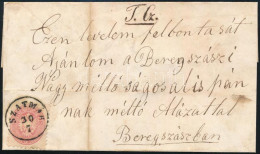 T. cz.
Ezen levelem felbontását
Ajánlom a Beregszászi
Nagy méltóságosalis pán
nak méltó Alázattal
Beregszászban
SZATMÁR
30
7